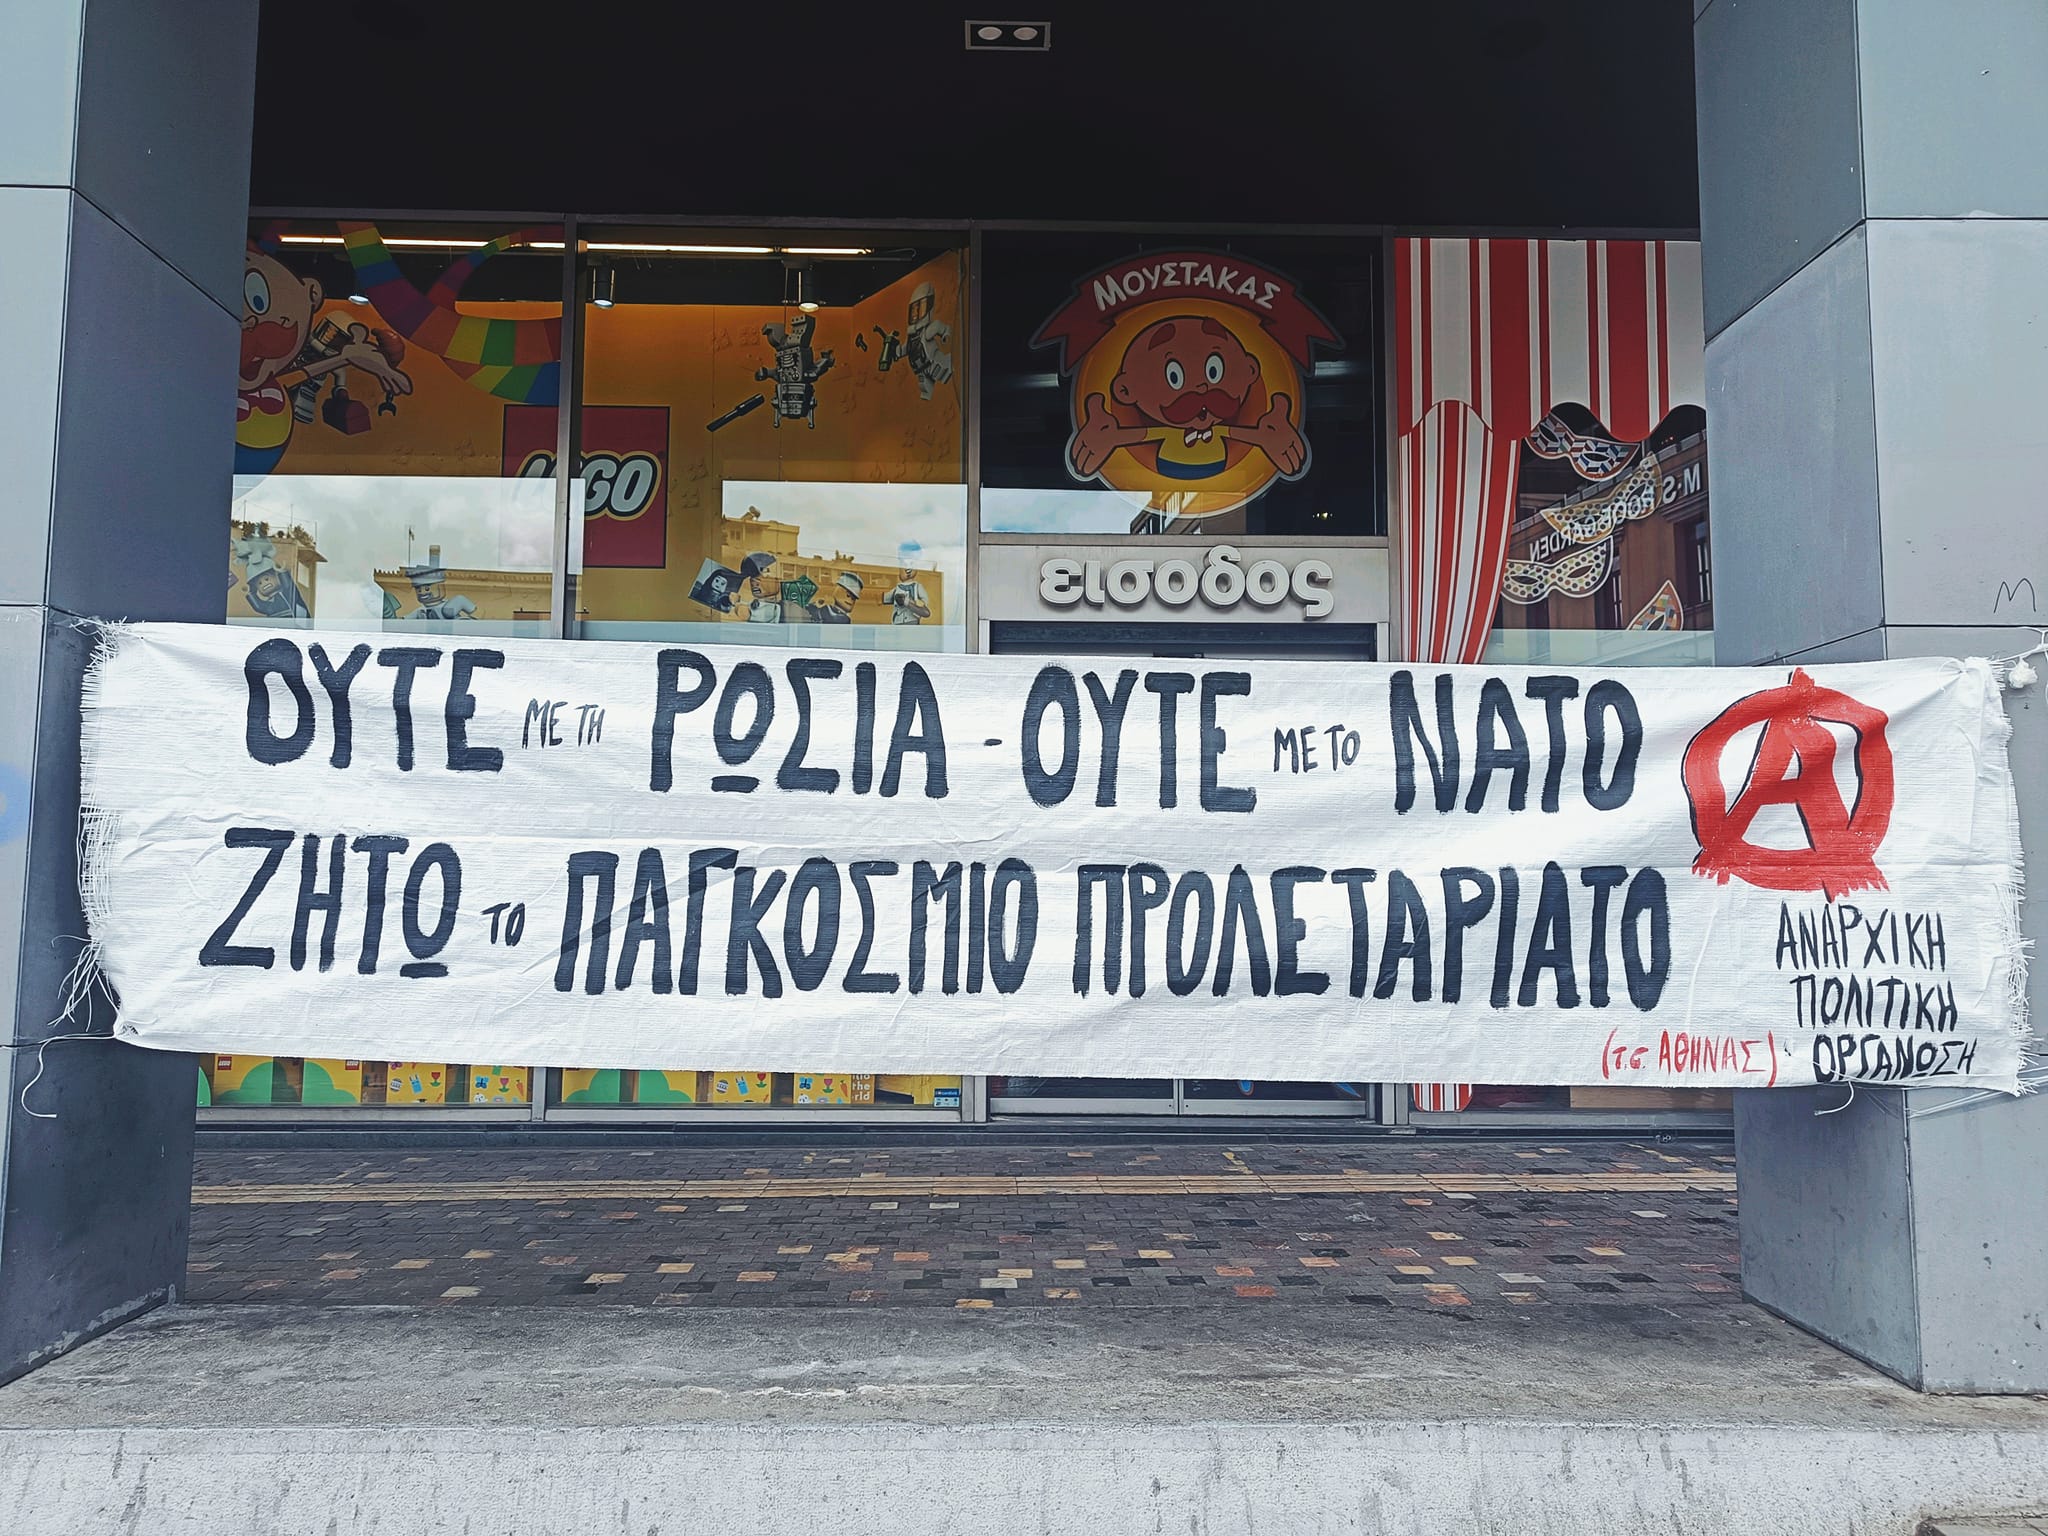 ΜΟΥΣΤΑΚΑΣ
LEGO
M·S
ROOF GARDEN
εισοδος
M
ΟΥΤΕ ΜΕ ΤΗ ΡΩΣΙΑ - ΟΥΤΕ ΜΕ ΤΟ ΝΑΤΟ
ΖΗΤΩ ΤΟ ΠΑΓΚΟΣΜΙΟ ΠΡΟΛΕΤΑΡΙΑΤΟ
Α
ΑΝΑΡΧΙΚΗ
ΠΟΛΙΤΙΚΗ
ΟΡΓΑΝΩΣΗ
(Τ.Σ. ΑΘΗΝΑΣ)